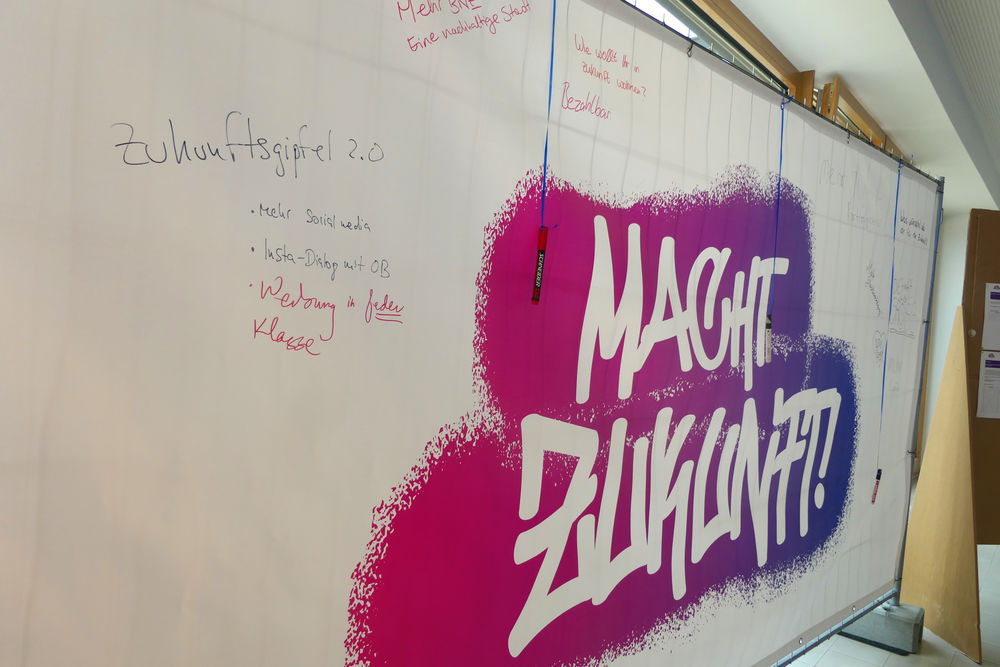 Mehr BNE
Eine nachhaltige Stadt
Wie wollt Ihr in
zukunft wohnen?
Bezahlbar
Zukunftsgipfel 2.0
• Mehr Social media
• Insta-Dialog mit OB
• Werbung in jeder
Klasse
MACHT
ZUKUNFT!
SCHNEIDER